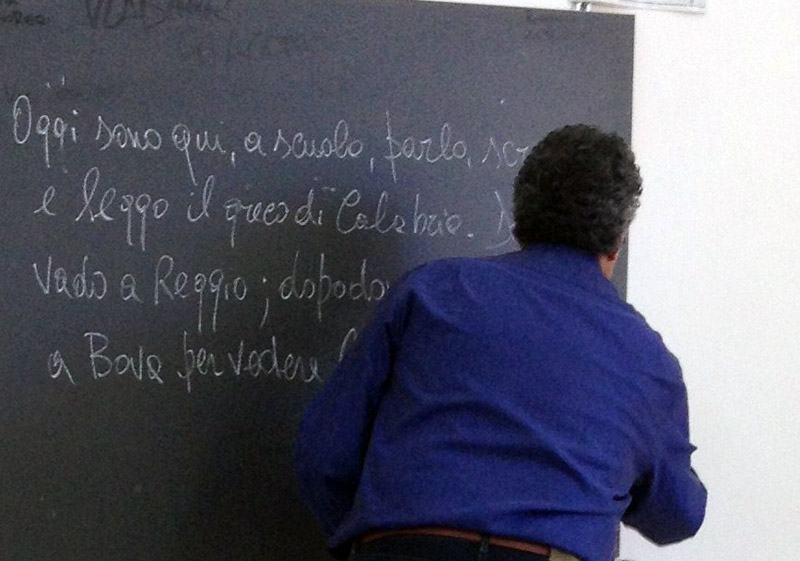 Oggi sono qui, a scuola, parlo, scr
e leggo il greco di Calabria. D
vado a Reggio; dopodo
a Bova per vedere l